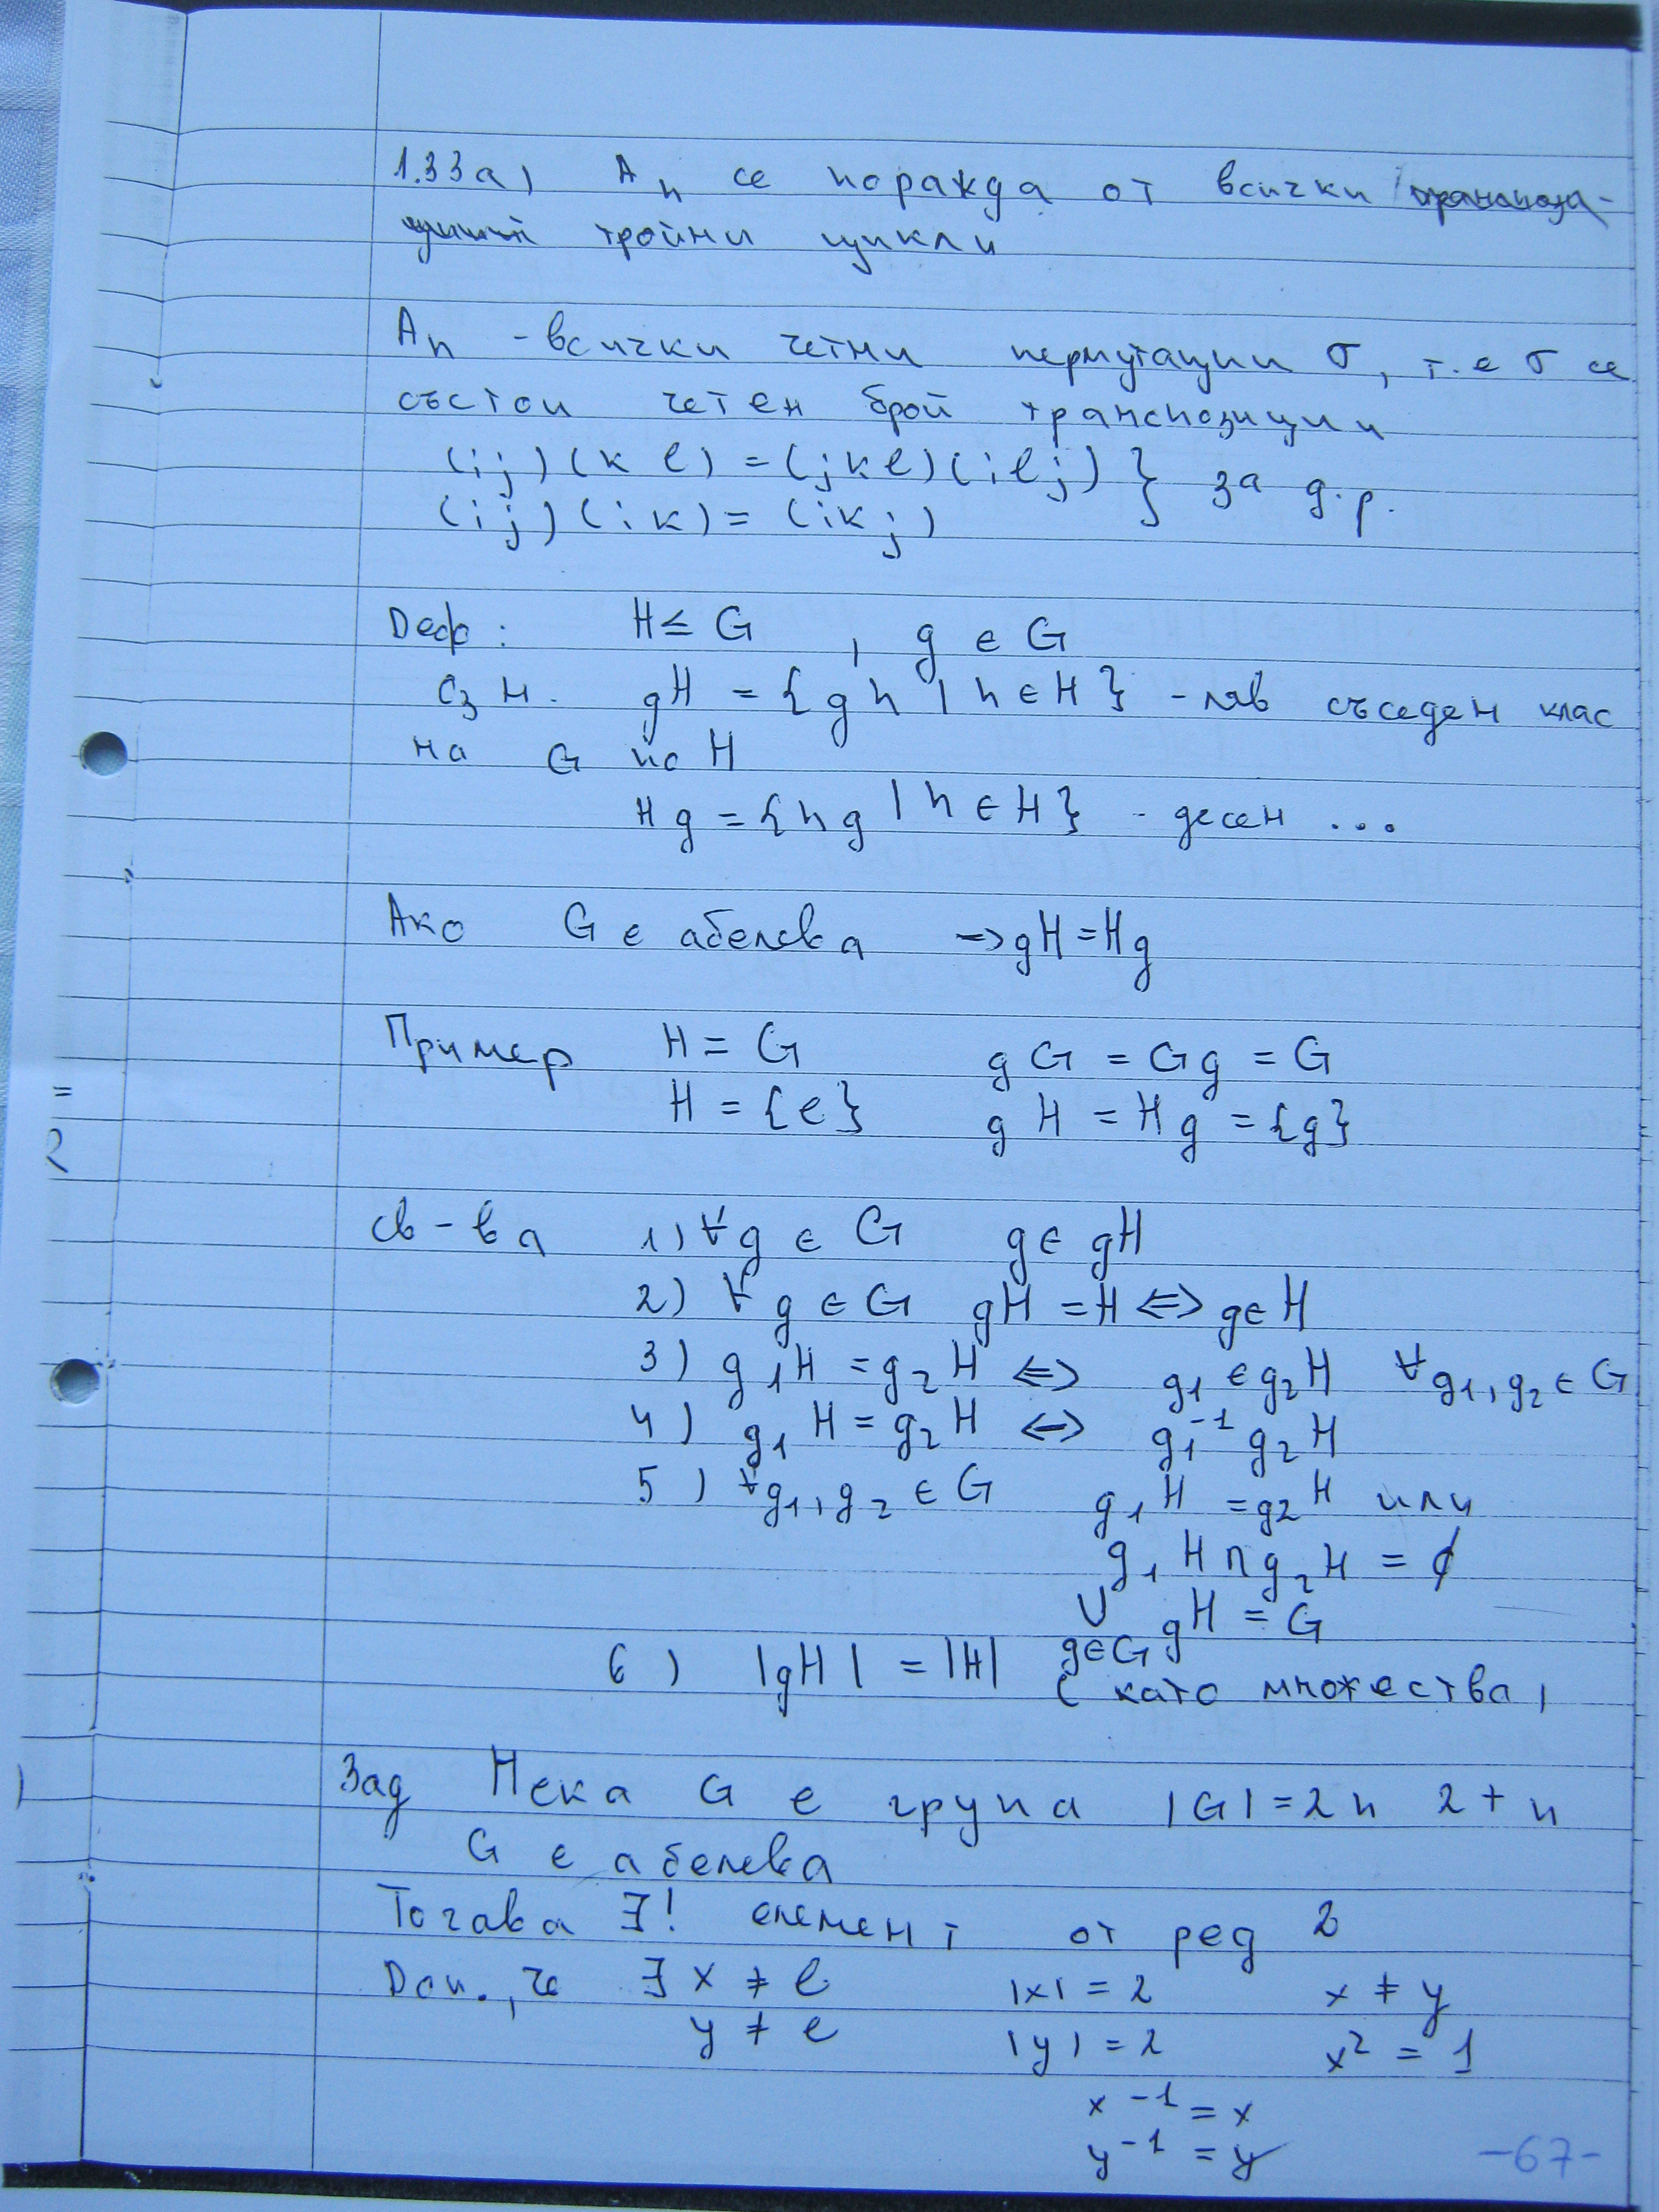 1.33a) An се поражда от всички транспози-
ции тройни цикли
An - всички четни пермутации σ, т.е σ се
състои четен брой транспозиции
(ij)(k l) = (jkl)(ilj) } за д.р.
(ij)(ik) = (ikj)
Деф: H ≤ G , g ∈ G
Сз н. gH = {gh | h ∈ H} - ляв съседен клас
на G по H
Hg = {hg | h ∈ H} - десен ...
Ако G е абелева -> gH = Hg
Пример H = G gG = Gg = G
H = {e} gH = Hg = {g}
=
2
Св-ва 1) ∀g ∈ G g ∈ gH
2) ∀g ∈ G gH = H <=> g ∈ H
3) g₁H = g₂H <=> g₁ ∈ g₂H ∀g₁, g₂ ∈ G
4) g₁H = g₂H <=> g₁⁻¹ g₂H
5) ∀g₁, g₂ ∈ G g₁H = g₂H или
g₁H ∩ g₂H = ∅
∪ gH = G
g∈G
6) |gH| = |H| (като множества)
Зад Нека G е група |G| = 2n 2 ∤ n
G е абелева
Тогава ∃! елемент от ред 2
Доп., че ∃ x ≠ e |x| = 2 x ≠ y
y ≠ e |y| = 2 x² = 1
x⁻¹ = x
y⁻¹ = y
-67-